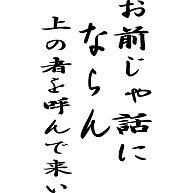 お前じゃ話に
ならん
上の者を呼んで来い